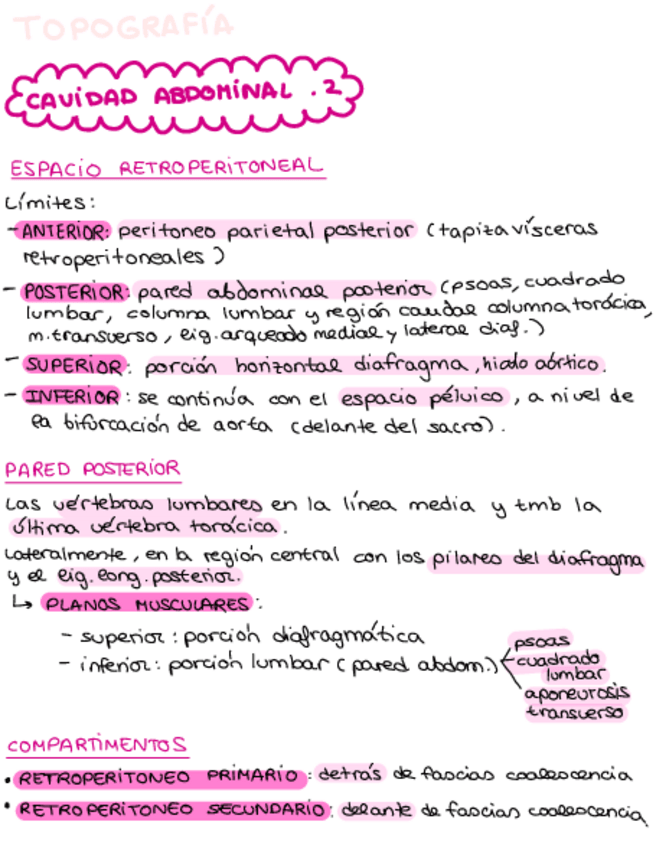 TOPOGRAFÍA
CAVIDAD ABDOMINAL . 2
ESPACIO RETROPERITONEAL
Límites:
- ANTERIOR: peritoneo parietal posterior (tapiza vísceras
retroperitoneales)
- POSTERIOR: pared abdominal posterior (psoas, cuadrado
lumbar, columna lumbar y región caudal columna torácica,
m. transverso, lig. arqueado medial y lateral diaf.)
- SUPERIOR: porción horizontal diafragma, hiato aórtico.
- INFERIOR: se continúa con el espacio pélvico, a nivel de
la bifurcación de aorta (delante del sacro).
PARED POSTERIOR
Las vértebras lumbares en la línea media y tmb la
última vértebra torácica.
Lateralmente, en la región central con los pilares del diafragma
y el lig. long. posterior.
↳ PLANOS MUSCULARES:
- superior: porción diafragmática
- inferior: porción lumbar (pared abdom.)
psoas
cuadrado
lumbar
aponeurosis
transverso
COMPARTIMENTOS
• RETROPERITONEO PRIMARIO: detrás de fascias coalescencia
• RETROPERITONEO SECUNDARIO: delante de fascias coalescencia